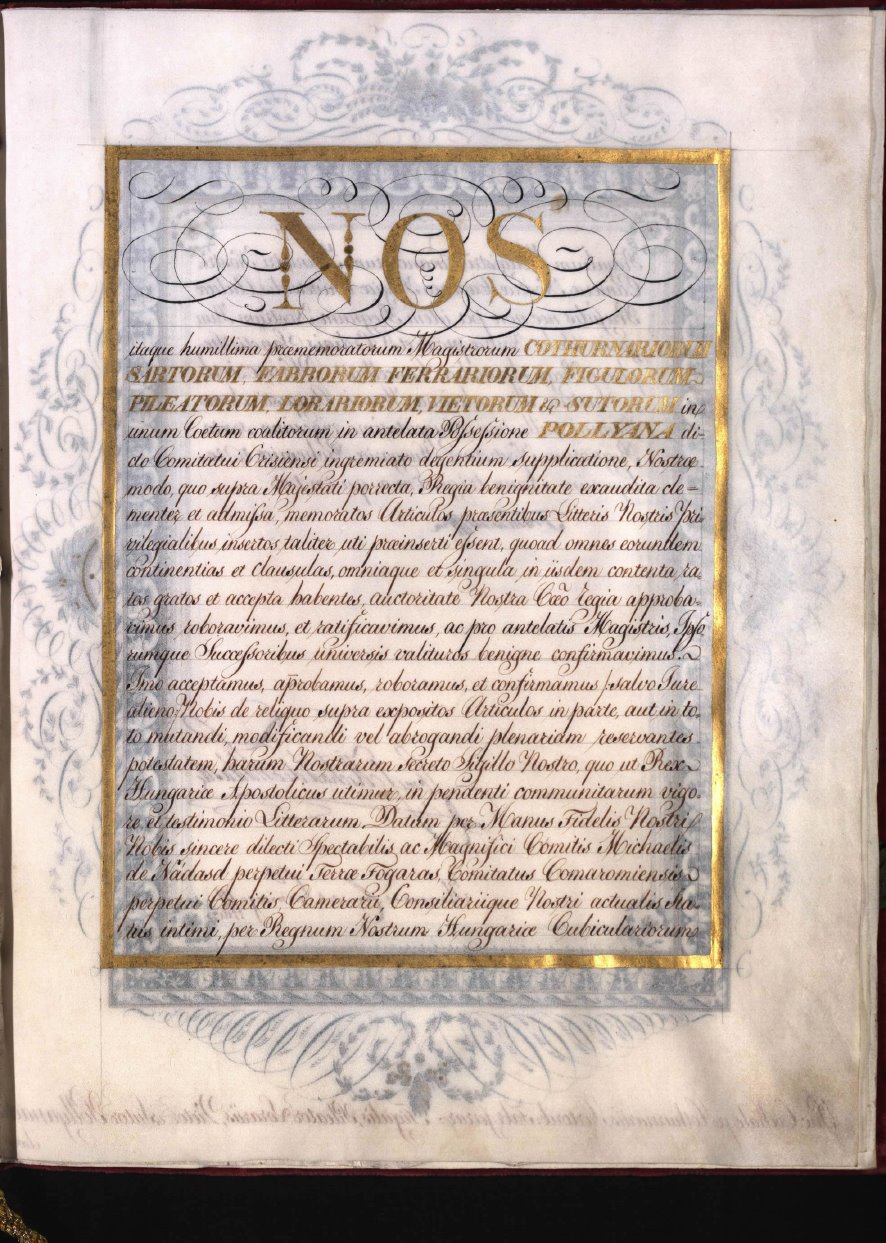 NOS
itaque humillima præmemoratorum Magistrorum COTHURNARIORUM
SARTORUM, FABRORUM FERRARIORUM, FIGULORUM
PILEATORUM, LORARIORUM, VIETORUM & SUTORUM in
unum Coetum coalitorum, in antelata Possessione POLLYANA di-
cto Comitatui Crisiensi ingremiato degentium supplicatione, Nostræ
modo, quo supra Majestati porrecta, Regia benignitate exaudita cle=
menter et admissa, memoratos Articulos præsentibus Litteris Nostris Pri
vilegialibus insertos, taliter uti præinserti essent, quoad omnes eorundem
continentias et clausulas, omniaque et singula in iisdem contenta ra,
tos gratos et accepta habentes, auctoritate Nostra Cæo Regia approba-
vimus roboravimus, et ratificavimus, ac pro antelatis Magistris, Ipso
rumque Successoribus universis valituros benigne confirmavimus.
Imo acceptamus, aprobamus, roboramus, et confirmamus /:salvo Jure
alieno:/ Nobis de reliquo supra expositos Articulos in parte, aut in to,
to mutandi, modificandi vel abrogandi plenariam reservantes
potestatem, harum Nostrarum Secreto Sigillo Nostro, quo ut Rex
Hungariæ Apostolicus utimur, in pendenti communitarum vigo,
re, et testimonio Litterarum. Datum per Manus Fidelis Nostri
Nobis sincere dilecti Spectabilis, ac Magnifici Comitis Michaelis
de Nádasd perpetui Terræ Fogaras, Comitatus Comaromiensis
perpetui Comitis, Camerarii, Consiliariique Nostri actualis Sta,
tus intimi, per Regnum Nostrum Hungariæ Cubiculariorum